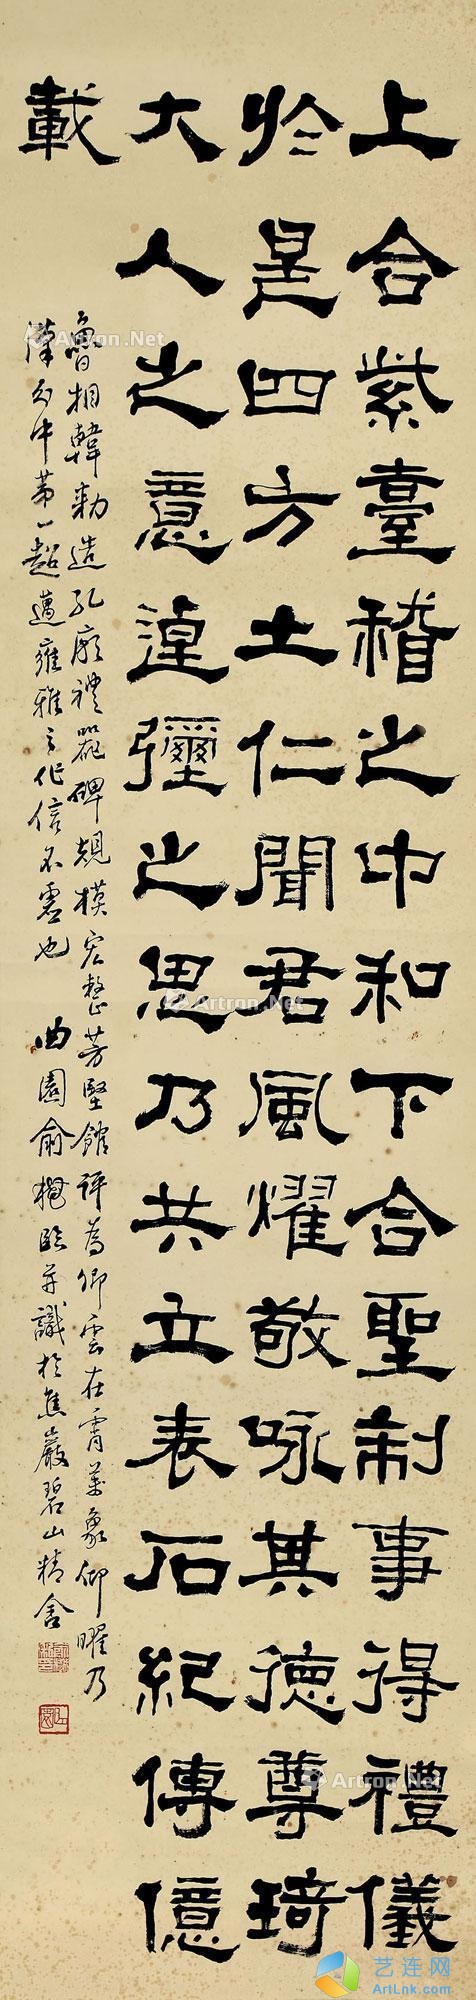 上合紫臺稽之中和下合聖制事得禮儀
於是四方土仁聞君風燿敬咏其德尊琦
大人之意逴彌之思乃共立表石紀傳億
載
魯相韓勑造孔廟禮器碑規模宏整芳堅館評為卿雲在霄萬象仰曜乃
漢分中第一超邁雍雅之作信不虛也 曲園俞樾臨并識於焦巖碧山精舍
Artron.Net
Artron.Net
Artron.Net
Artron.Net
Artron.Net
艺连网
ArtLink.com